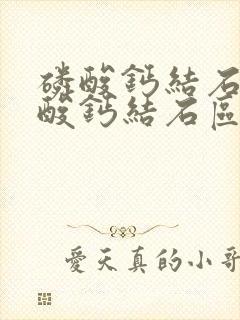 磷酸鈣結石
酸鈣結石區
愛天真的小哥